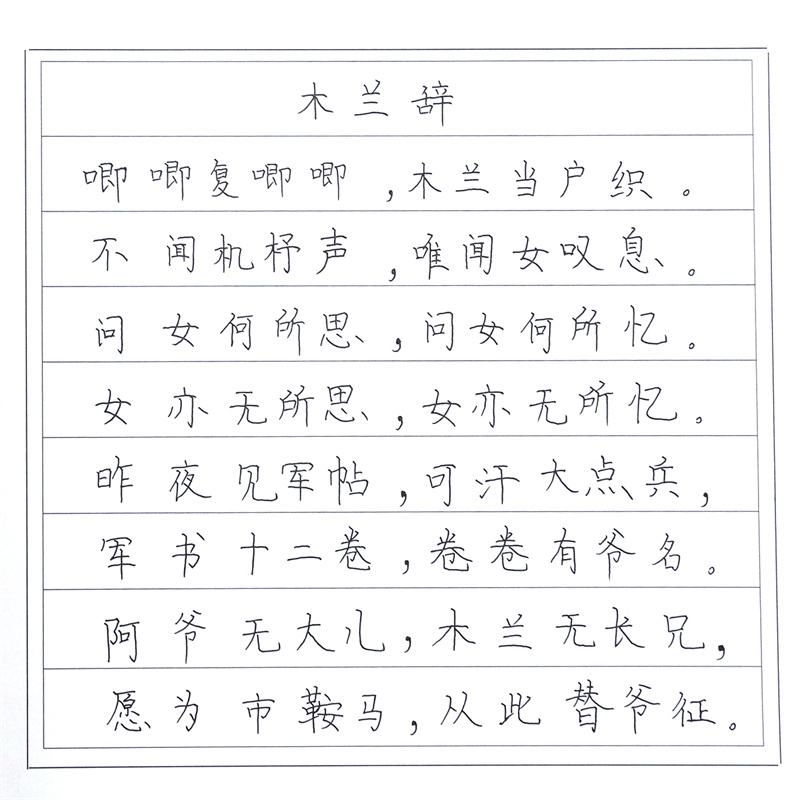 木兰辞
唧唧复唧唧,木兰当户织。
不闻机杼声,唯闻女叹息。
问女何所思,问女何所忆。
女亦无所思,女亦无所忆。
昨夜见军帖,可汗大点兵,
军书十二卷,卷卷有爷名。
阿爷无大儿,木兰无长兄,
愿为市鞍马,从此替爷征。